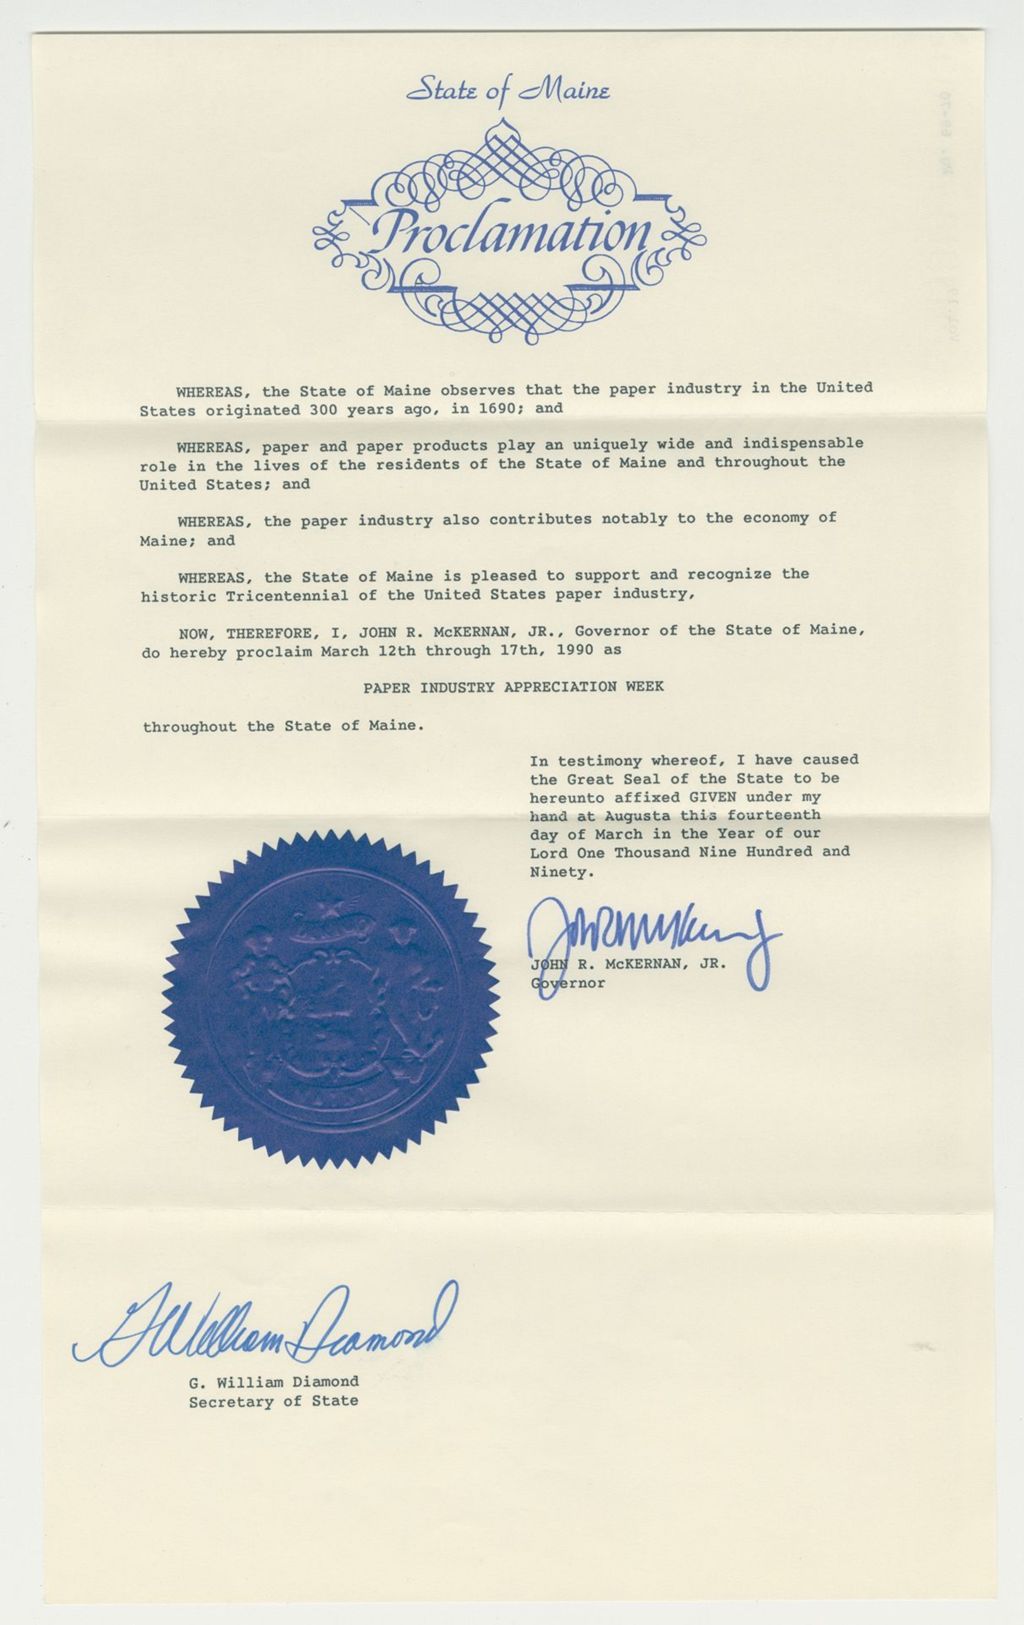 State of Maine
Proclamation
WHEREAS, the State of Maine observes that the paper industry in the United
States originated 300 years ago, in 1690; and
WHEREAS, paper and paper products play an uniquely wide and indispensable
role in the lives of the residents of the State of Maine and throughout the
United States; and
WHEREAS, the paper industry also contributes notably to the economy of
Maine; and
WHEREAS, the State of Maine is pleased to support and recognize the
historic Tricentennial of the United States paper industry,
NOW, THEREFORE, I, JOHN R. McKERNAN, JR., Governor of the State of Maine,
do hereby proclaim March 12th through 17th, 1990 as
PAPER INDUSTRY APPRECIATION WEEK
throughout the State of Maine.
In testimony whereof, I have caused
the Great Seal of the State to be
hereunto affixed GIVEN under my
hand at Augusta this fourteenth
day of March in the Year of our
Lord One Thousand Nine Hundred and
Ninety.
JOHN R. McKERNAN, JR.
Governor
G William Diamond
G. William Diamond
Secretary of State